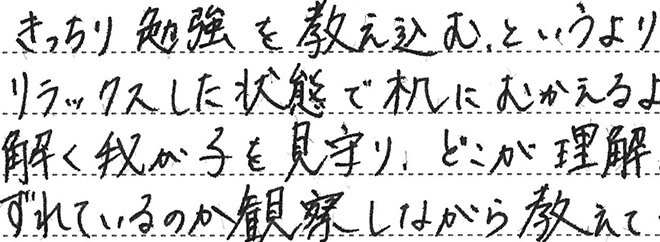 きっちり勉強を教え込む、というより
リラックスした状態で机にむかえるよ
解く我が子を見守り、どこが理解
ずれているのか観察しながら教えて